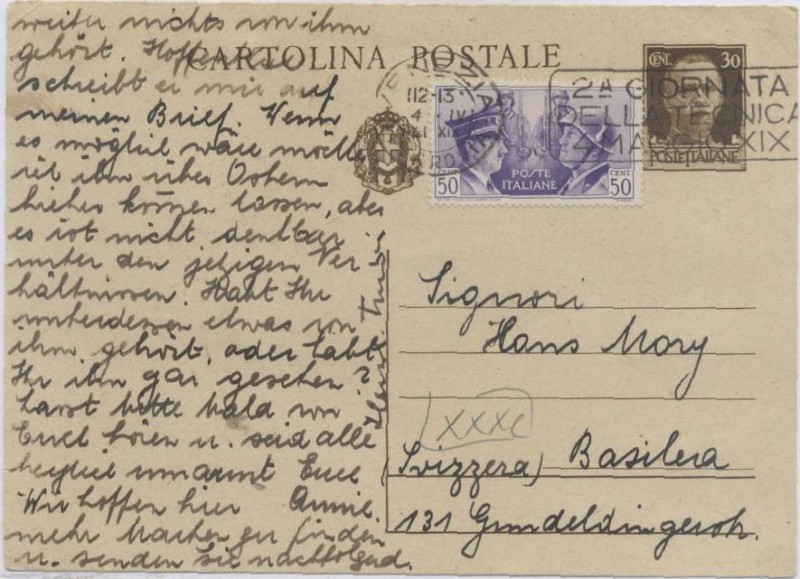 weiter nichts von ihm
gehört. Hoffentlich
schreibt er mir auf
meinen Brief. Wenn
es möglich wäre möcht
ich ihn über Ostern
hieher kommen lassen, aber
es ist nicht denkbar
unter den jetzigen Ver
hältnissen. Habt Ihr
unterdessen etwas von
ihm gehört, oder habt
Ihr ihn gar gesehen?
Lasst bitte bald von
Euch hören u. seid alle
herzlich umarmt Eure
Annie.
Wir hoffen hier
mehr Marken zu finden
u. senden sie nachfolgend.
CARTOLINA POSTALE
VENEZIA
112-13
4 IV
41 XIX
2A GIORNATA
DELLA TECNICA
4 MAGGIO XIX
CENT. 30
POSTE ITALIANE
50
POSTE
ITALIANE
CENT
50
Signori
Hans Mory
XXXC
(Svizzera) Basilea
131 Gundeldingerstr.